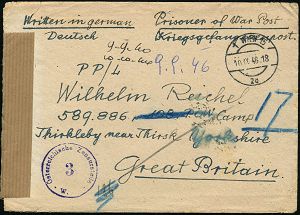 Written in german Prisoner of War Post
Deutsch Kriegsgefangenenpost
9-9-40
PP/4 9.9.46
10.IX.46.18
Wilhelm Reichel
589.886 Camp
Thirkleby near Thirsk Yorkshire
Great Britain
17
Österreichische Zensurstelle
3
W.